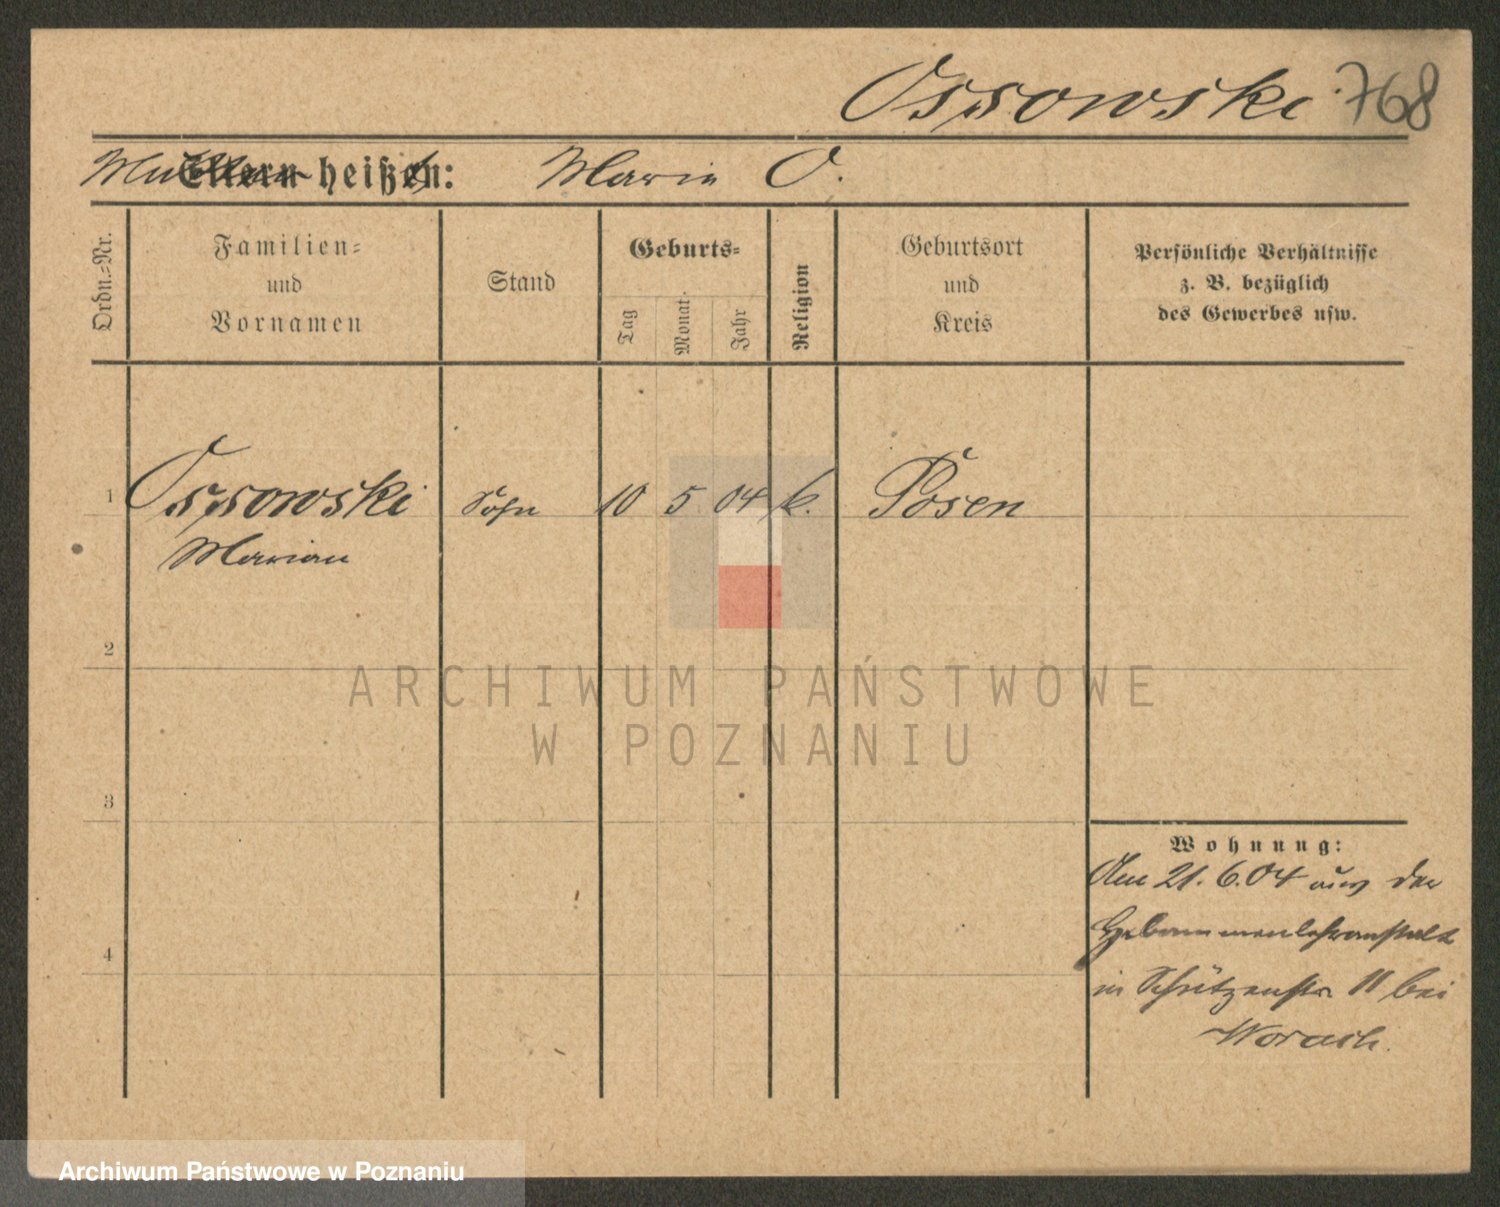 Ossowski 768
Mutter Eltern heißt: Marie O.
Ordn.=Nr.
Familien=
und
Vornamen
Stand
Geburts=
Tag
Monat
Jahr
Religion
Geburtsort
und
Kreis
Persönliche Verhältnisse
z. B. bezüglich
des Gewerbes usw.
1 Ossowski Sohn 10 5 04 k. Posen
Marian
2
ARCHIWUM PAŃSTWOWE
W POZNANIU
3
Wohnung:
Am 21.6.04 aus der
Hebammenlehranstalt
4
in Schützenstr 11 bei
Archiwum Państwowe w Poznaniu